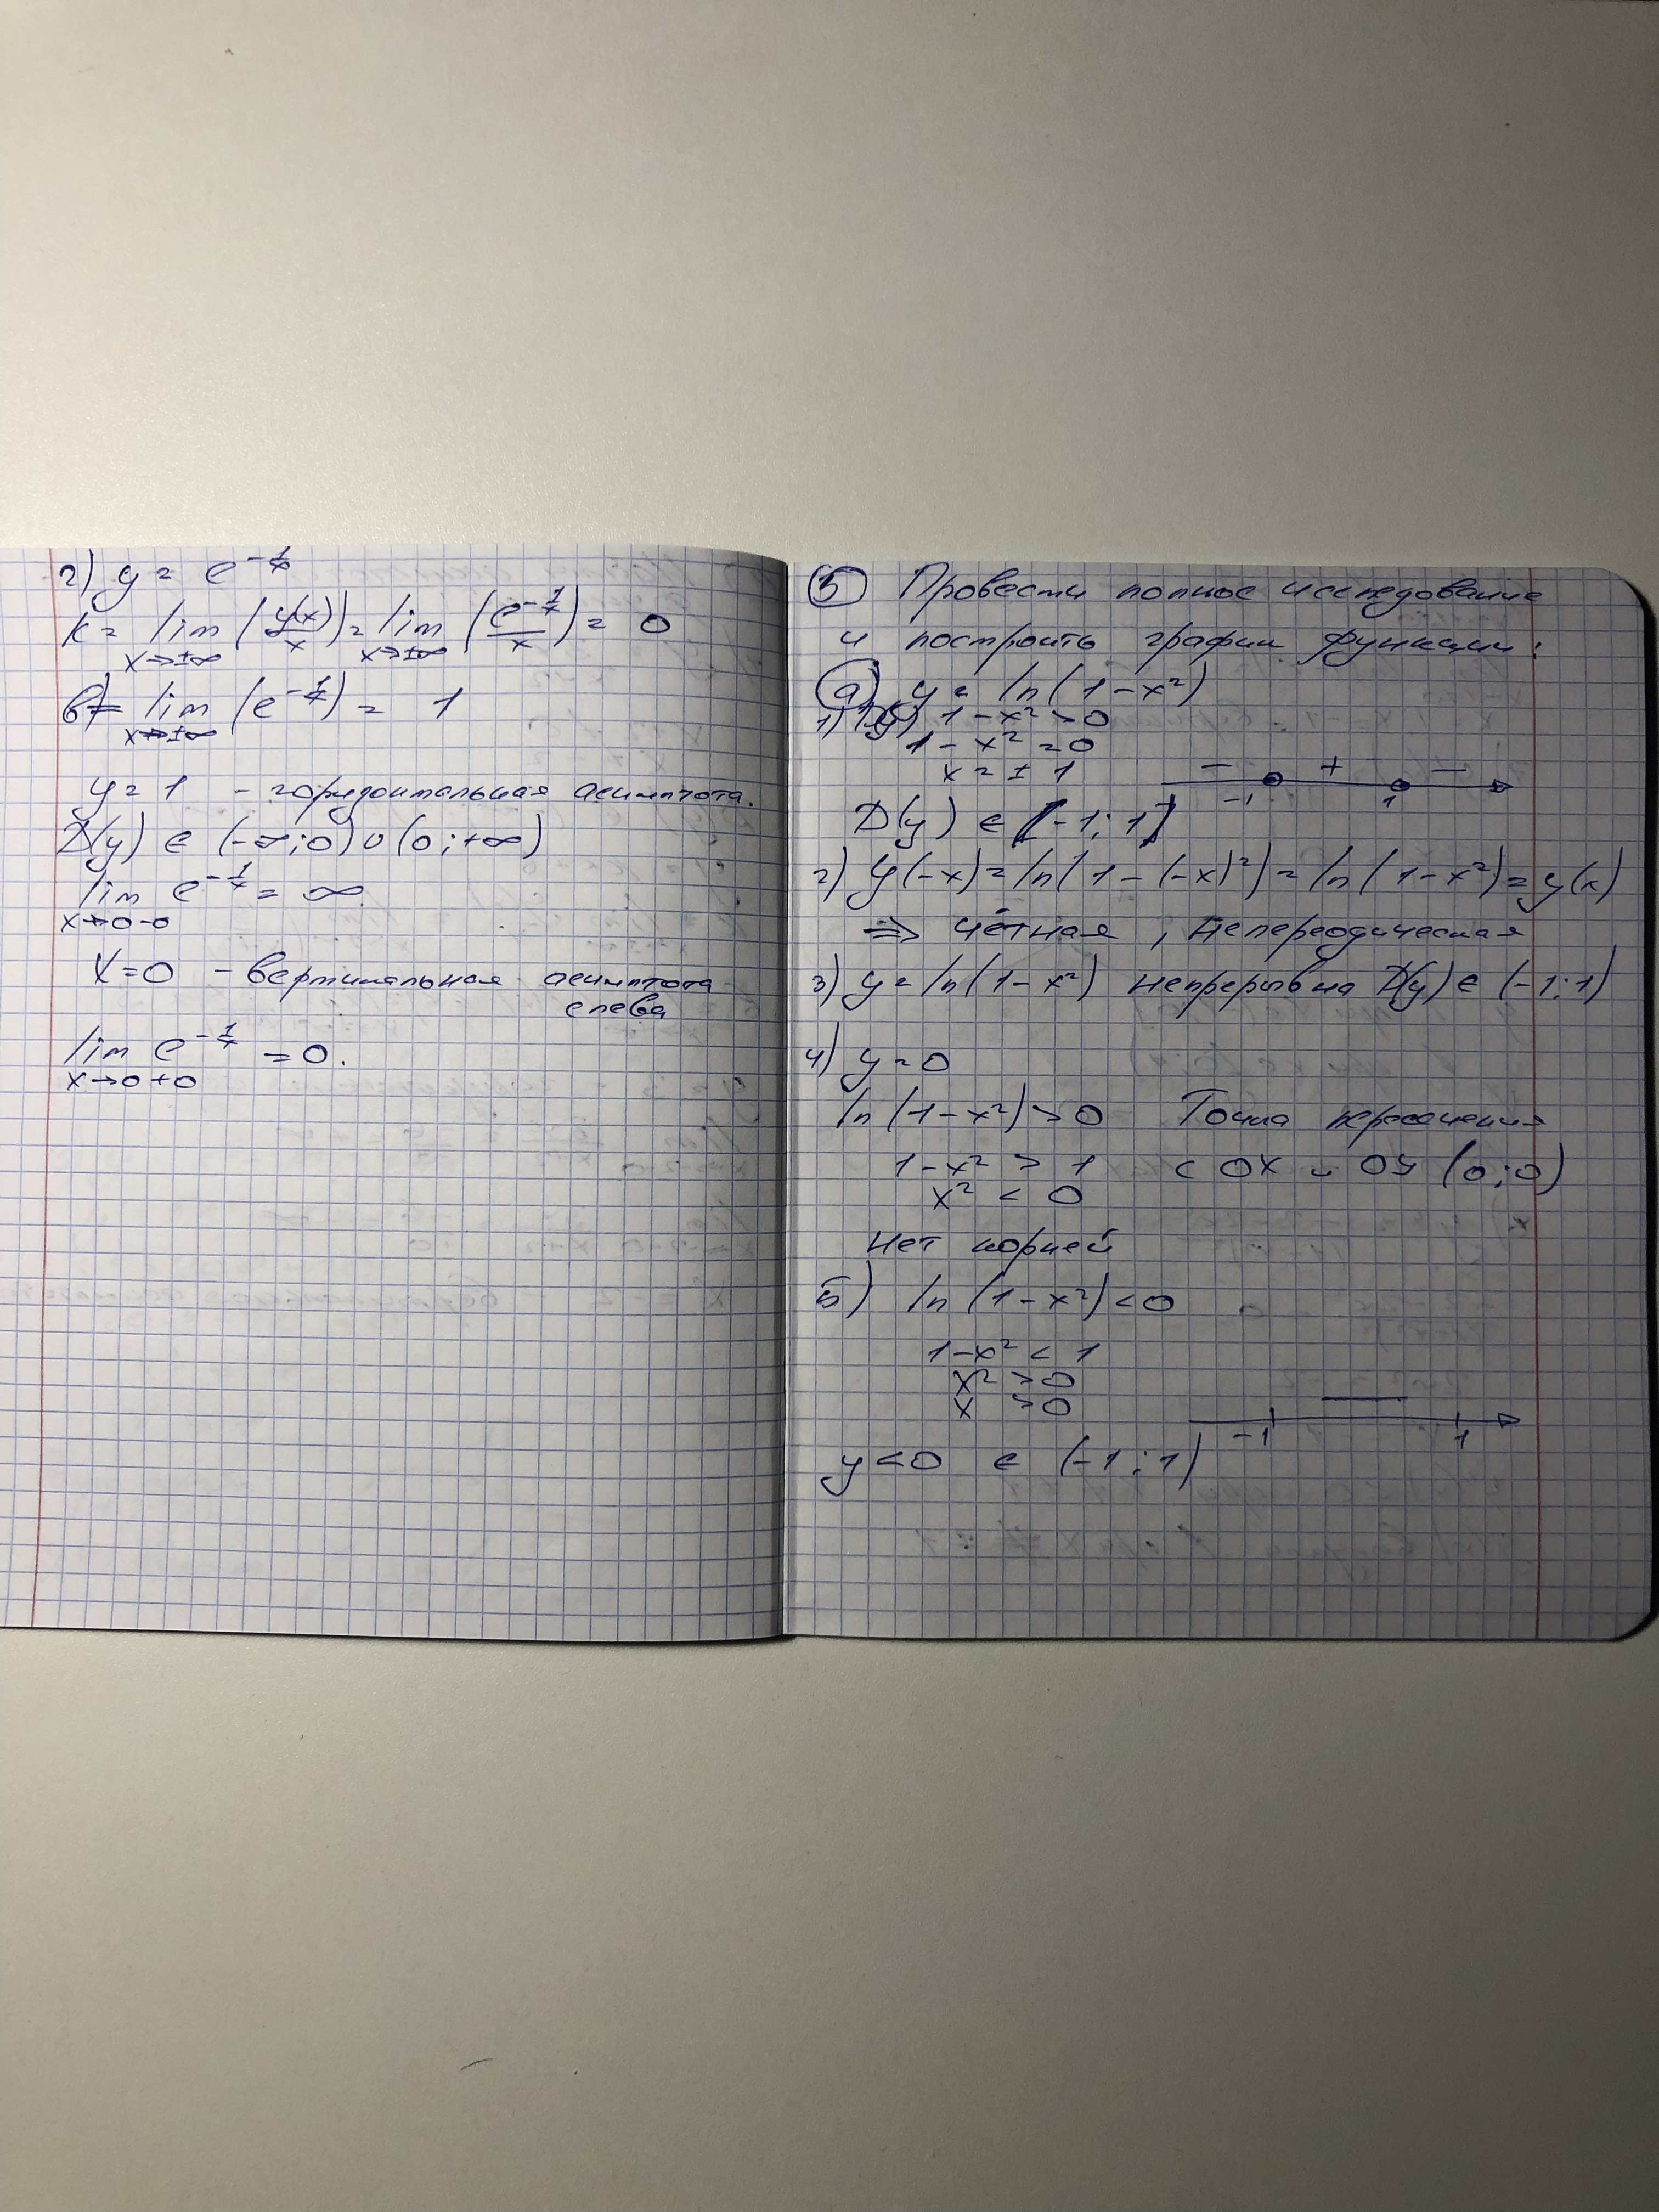 г) y = e^{-1/x}
k = lim_{x→±∞} (y(x)/x) = lim_{x→±∞} (e^{-1/x}/x) = 0
b = lim_{x→±∞} (e^{-1/x}) = 1
y = 1 - горизонтальная асимптота.
D(y) ∈ (-∞;0)∪(0;+∞)
lim_{x→0-0} e^{-1/x} = ∞.
X=0 - вертикальная асимптота
слева
lim_{x→0+0} e^{-1/x} = 0.
⑤ Провести полное исследование
и построить график функции:
а) y = ln(1-x²)
1) D(y) 1-x² > 0
1-x² = 0
x = ±1
- + -
-1 1
D(y) ∈ (-1;1)
2) y(-x) = ln(1-(-x)²) = ln(1-x²) = y(x)
⇒ чётная, непереодическая
3) y = ln(1-x²) непрерывна D(y) ∈ (-1;1)
4) y = 0
ln(1-x²) > 0 Точка пересечения
1-x² > 1 с OX и OY (0;0)
x² < 0
Нет корней
5) ln(1-x²) < 0
1-x² < 1
x² > 0
x > 0
-
-1 1
y < 0 ∈ (-1;1)